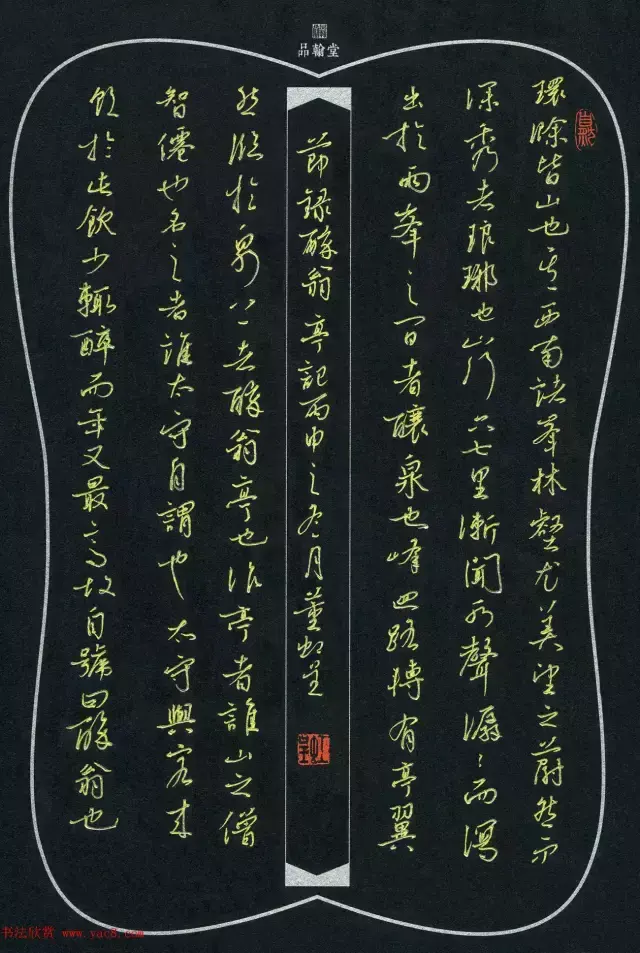 品翰堂
環滁皆山也其西南諸峯林壑尤美望之蔚然而
深秀者琅琊也山行六七里漸聞水聲潺潺而瀉
出於兩峯之間者釀泉也峰回路轉有亭翼
節録醉翁亭記丙申之冬月董虹
然臨於泉上者醉翁亭也作亭者誰山之僧
智僊也名之者誰太守自謂也太守與客來
飲於此飲少輒醉而年又最高故自號曰醉翁也
书法欣赏 www.yac8.com